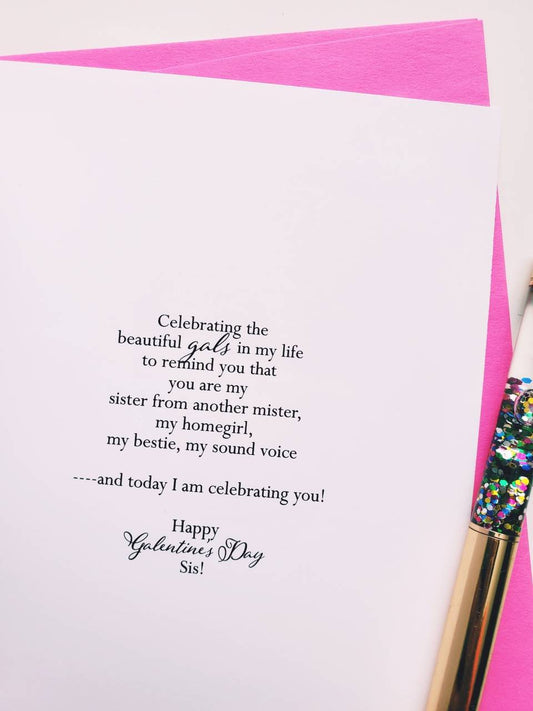 Celebrating the
beautiful gals in my life
to remind you that
you are my
sister from another mister,
my homegirl,
my bestie, my sound voice
----and today I am celebrating you!
Happy
Galentine's Day
Sis!